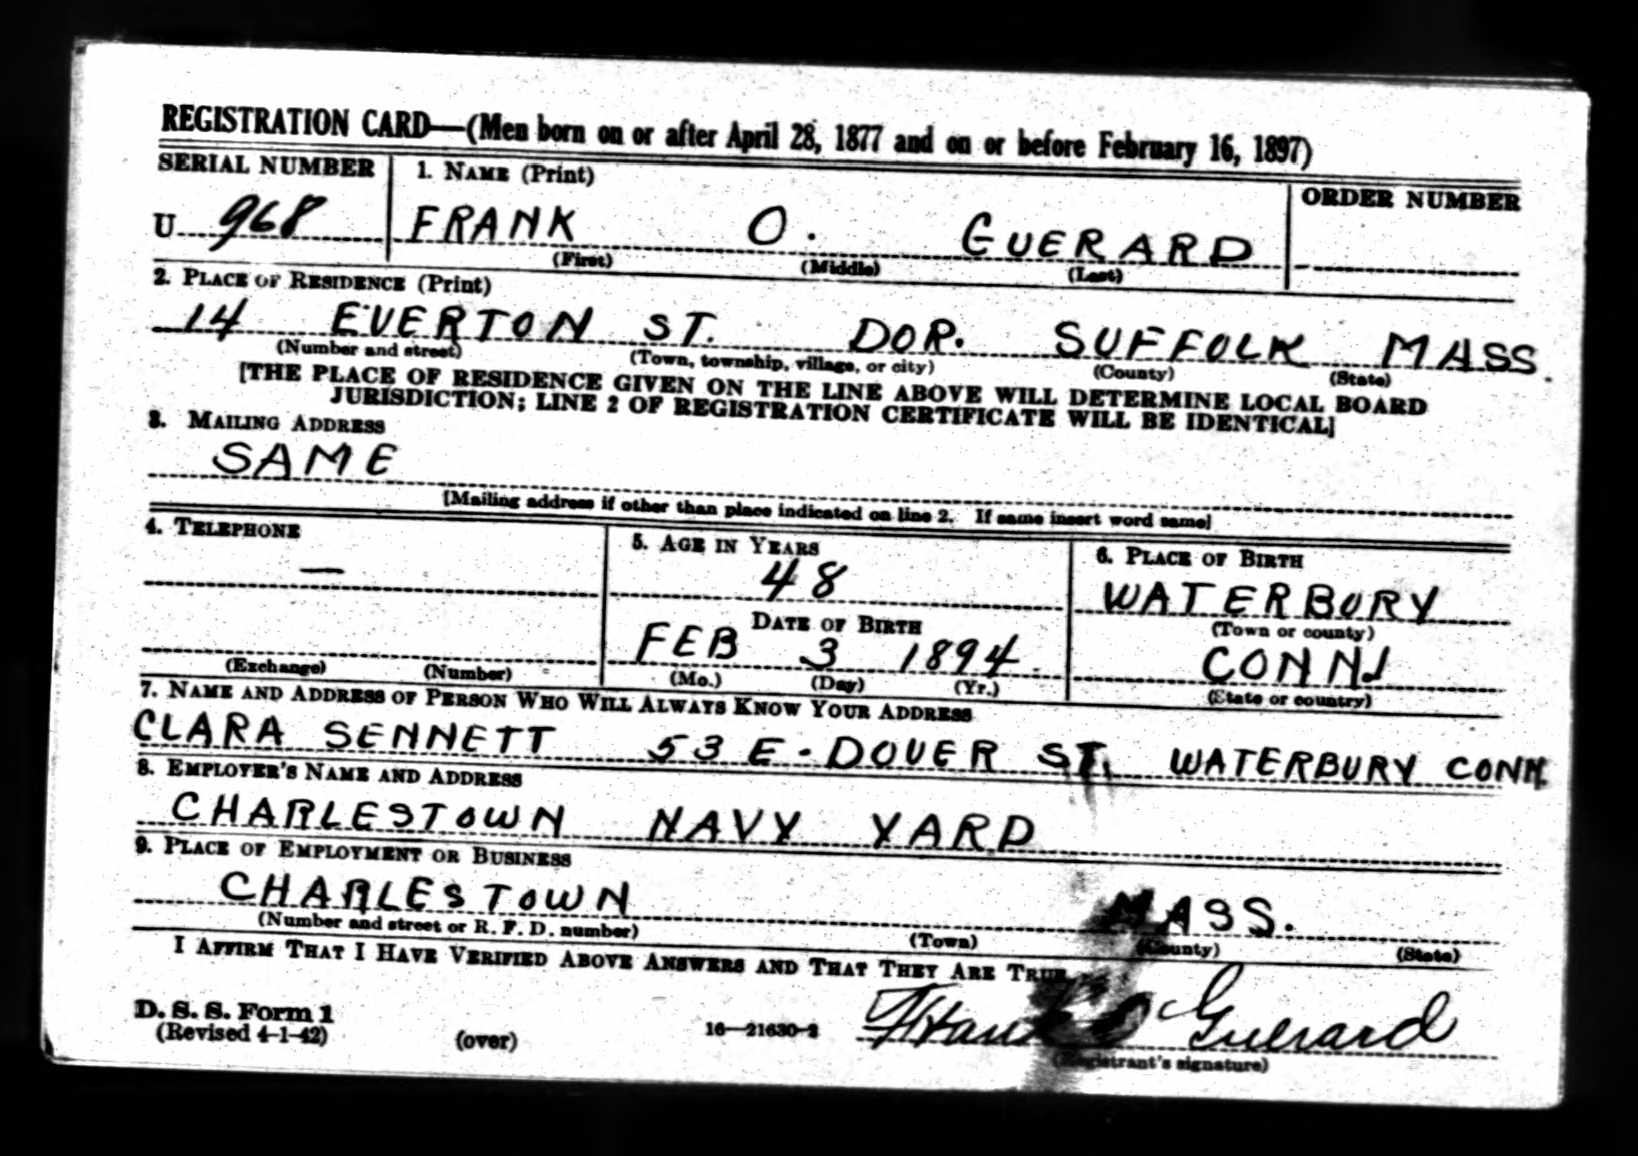 REGISTRATION CARD—(Men born on or after April 28, 1877 and on or before February 16, 1897)
SERIAL NUMBER 1. NAME (Print) ORDER NUMBER
U 968 FRANK O. GUERARD
(First) (Middle) (Last)
2. PLACE OF RESIDENCE (Print)
14 EVERTON ST. DOR. SUFFOLK MASS.
(Number and street) (Town, township, village, or city) (County) (State)
[THE PLACE OF RESIDENCE GIVEN ON THE LINE ABOVE WILL DETERMINE LOCAL BOARD
JURISDICTION; LINE 2 OF REGISTRATION CERTIFICATE WILL BE IDENTICAL]
3. MAILING ADDRESS
SAME
[Mailing address if other than place indicated on line 2. If same insert word same]
4. TELEPHONE 5. AGE IN YEARS 6. PLACE OF BIRTH
— 48 WATERBURY
DATE OF BIRTH (Town or county)
FEB 3 1894 CONN
(Exchange) (Number) (Mo.) (Day) (Yr.) (State or country)
7. NAME AND ADDRESS OF PERSON WHO WILL ALWAYS KNOW YOUR ADDRESS
CLARA SENNETT 53 E-DOVER ST. WATERBURY CONN
8. EMPLOYER'S NAME AND ADDRESS
CHARLESTOWN NAVY YARD
9. PLACE OF EMPLOYMENT OR BUSINESS
CHARLESTOWN MASS.
(Number and street or R. F. D. number) (Town) (County) (State)
I AFFIRM THAT I HAVE VERIFIED ABOVE ANSWERS AND THAT THEY ARE TRUE
D. S. S. Form 1
(Revised 4-1-42) (over) 16—21630-2 Frank O Guerard
(Registrant's signature)